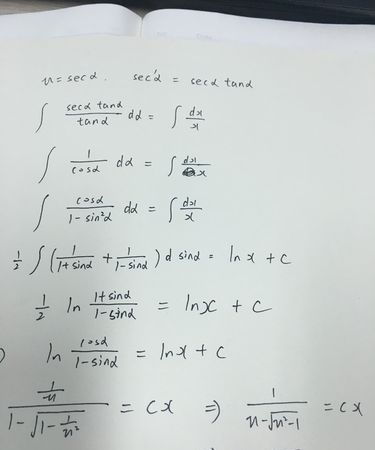 u = secα. sec'α = secα tanα
∫ secα tanα / tanα dα = ∫ dx / x
∫ 1 / cosα dα = ∫ dx / x
∫ cosα / 1 - sin²α dα = ∫ dx / x
1/2 ∫ ( 1 / 1+sinα + 1 / 1-sinα ) d sinα = ln x + c
1/2 ln 1+sinα / 1-sinα = ln x + c
ln cosα / 1-sinα = ln x + c
1/u / 1-√(1-1/u²) = cx ⇒ 1 / u-√(u²-1) = cx